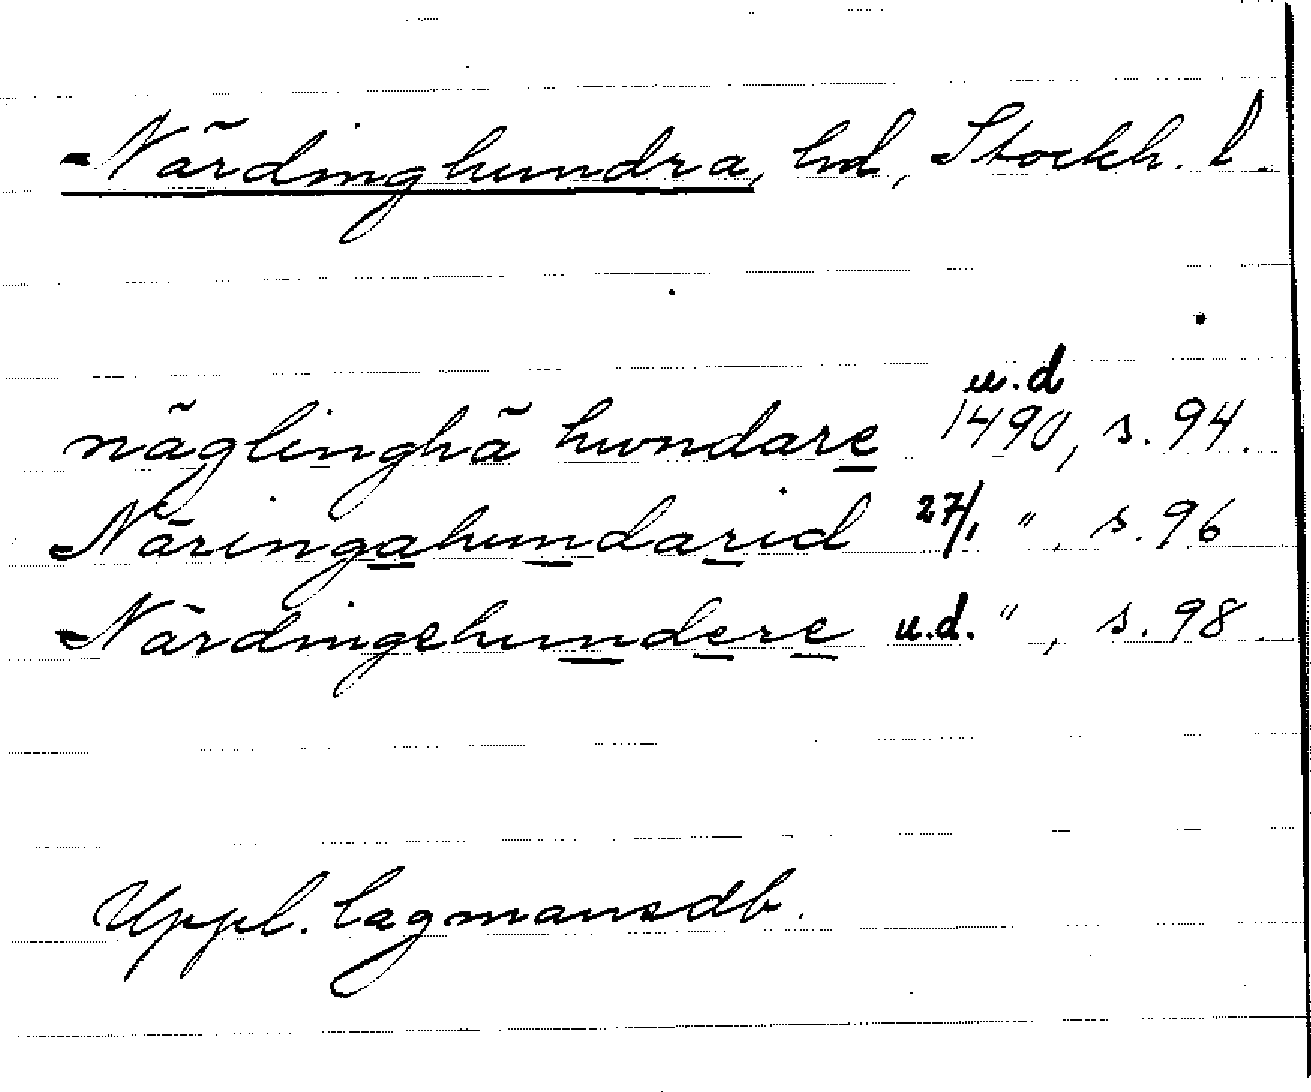 Närdinghundra, hd, Stockh. l.
näglinghä hundare u.d 1490, s. 94.
Näringahundarid 27/1 ", s. 96
Närdingehundere u.d. ", s. 98.
Uppl. lagmansdb.